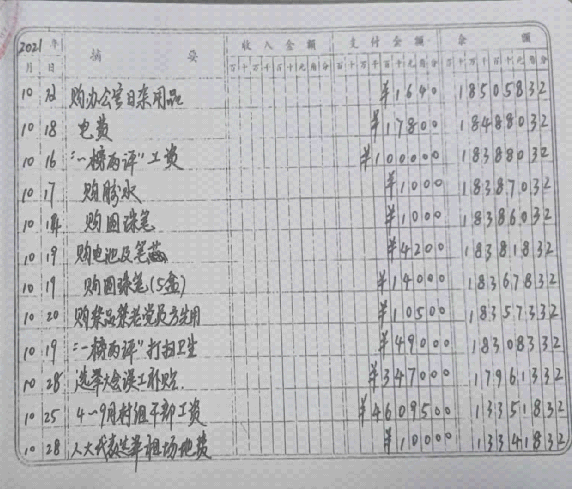 2021年 摘要 收入金额 支付金额 余额
月 日 百十万千百十元角分 百十万千百十元角分 百十万千百十元角分
10 12 购办公室日杂用品 ¥1640 18505832
10 18 电费 ¥17800 18488032
10 16 "一榜两评"工资 ¥100000 18388032
10 17 购胶水 ¥1000 18387032
10 购圆珠笔 ¥1000 18386032
10 19 购电池及笔芯 ¥4200 18381832
10 19 购圆珠笔(5盒) ¥14000 18367832
10 20 购祭品祭老党员 ¥10500 18357332
10 19 "一榜两评"打扫卫生 ¥49000 18308332
10 28 选举大会误工补贴. ¥347000 17961332
10 25 4-9月村组干部工资 ¥4609500 13351832
10 28 人大代表选举租场地费 ¥10000 13341832